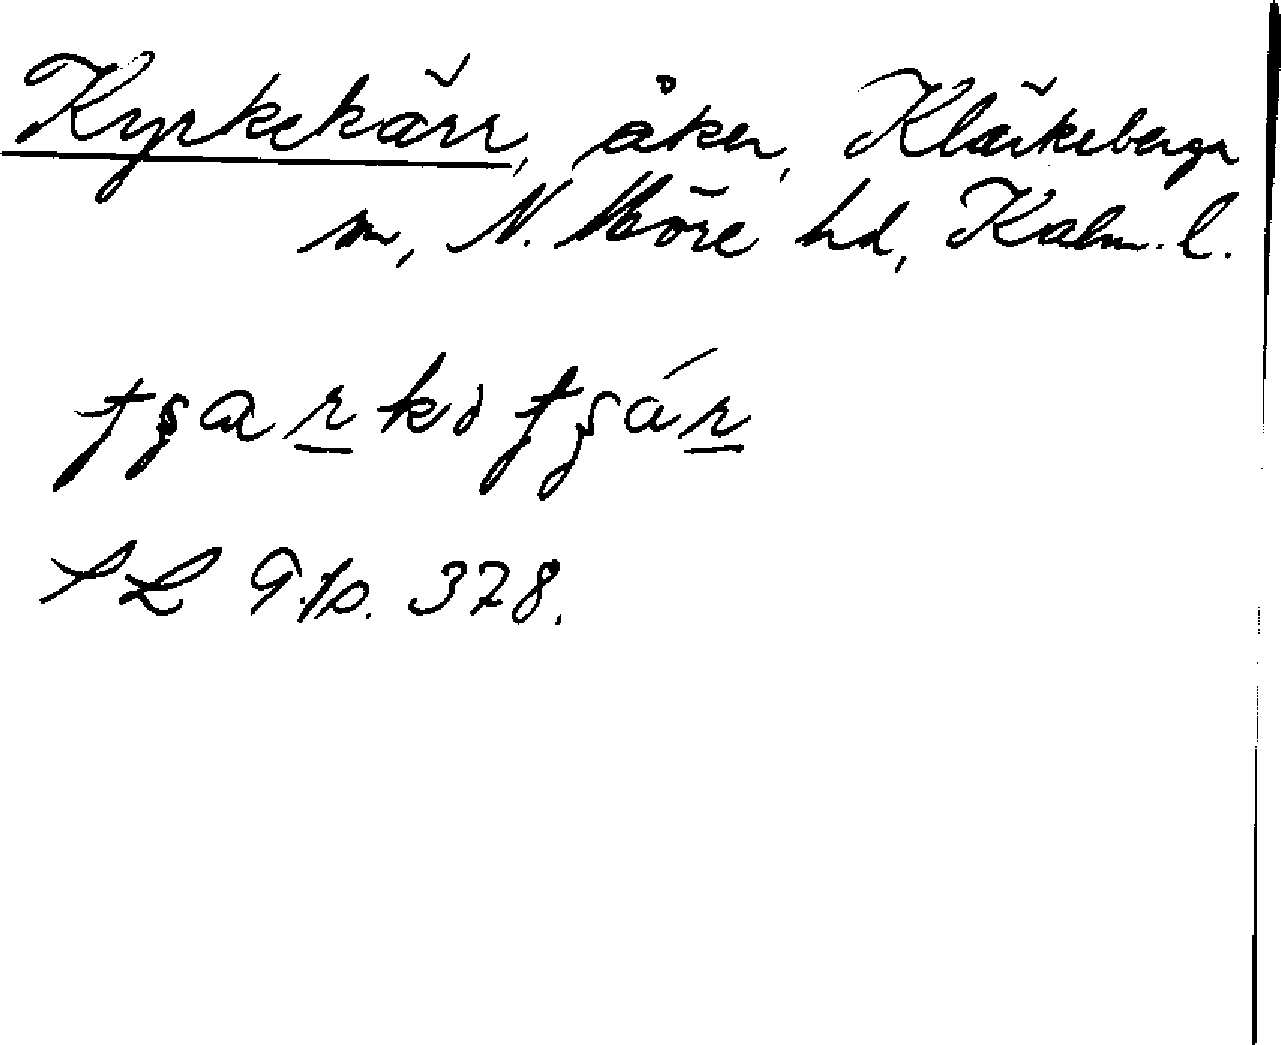 Kyrkekärr, åker, Kläckeberga
sn, N. Möre hd, Kalm. l.
SL 9. p. 378.